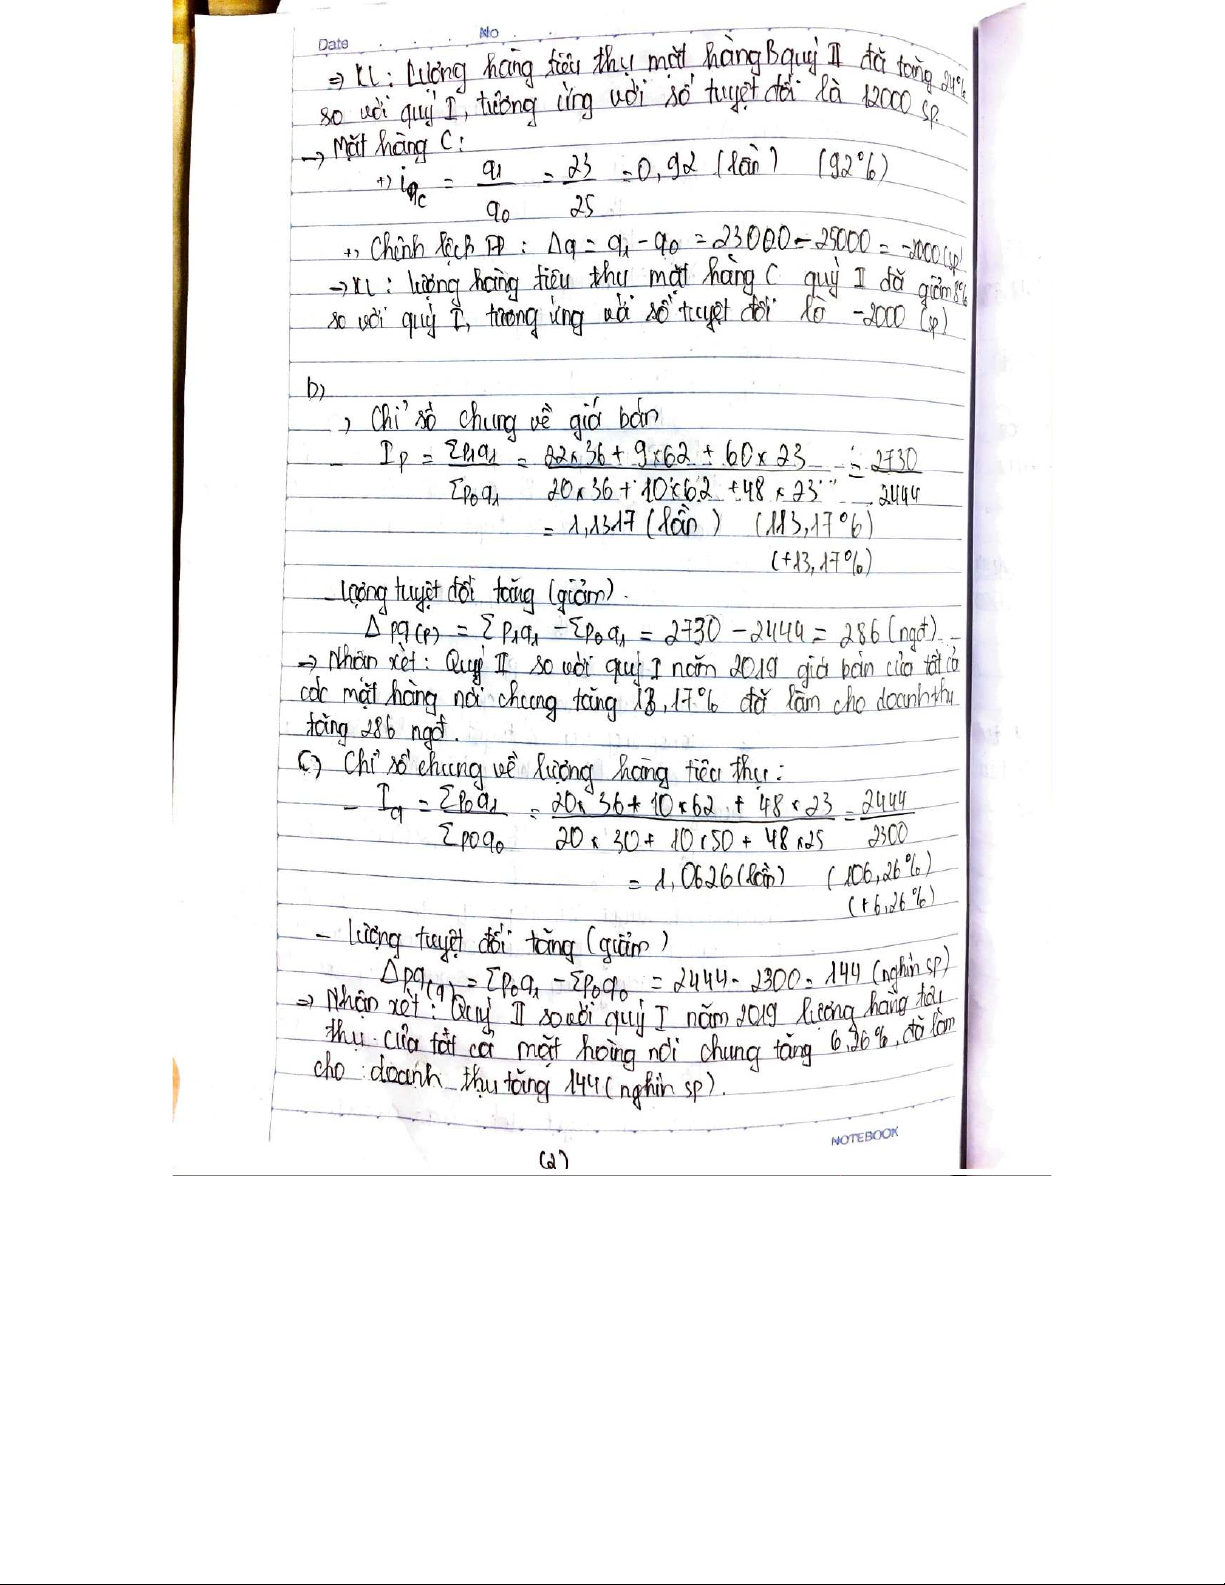 Date No
=> KL: Lượng hàng tiêu thụ mặt hàng B quý II đã tăng 24%
so với quý I, tương ứng với số tuyệt đối là 12000 sp
-> Mặt hàng C:
+) iqc = q1/q0 = 23/25 = 0,92 (lần) (92%)
+, Chênh lệch : Δq = q1 - q0 = 23000 - 25000 = -2000 (sp)
-> KL: lượng hàng tiêu thụ mặt hàng C quý II đã giảm 8%
so với quý I, tương ứng với số tuyệt đối là -2000 (sp)
b)
, Chỉ số chung về giá bán
- Ip = Σp1q1/Σp0q1 = (22x36 + 9x62 + 60x23)/(20x36 + 10x62 + 48x23) = 2730/2444
= 1,1317 (lần) (113,17%)
(+13,17%)
- lượng tuyệt đối tăng (giảm).
Δpq(p) = Σp1q1 - Σp0q1 = 2730 - 2444 = 286 (ngđ)
=> Nhận xét: Quý II so với quý I năm 2019 giá bán của tất cả
các mặt hàng nói chung tăng 13,17% đã làm cho doanh thu
tăng 286 ngđ.
c) Chỉ số chung về lượng hàng tiêu thụ:
- Iq = Σp0q1/Σp0q0 = (20x36 + 10x62 + 48x23)/(20x30 + 10x50 + 48x25) = 2444/2300
= 1,0626 (lần) (106,26%)
(+6,26%)
- lượng tuyệt đối tăng (giảm)
Δpq(q) = Σp0q1 - Σp0q0 = 2444 - 2300 = 144 (nghìn sp)
=> Nhận xét: Quý II so với quý I năm 2019 lượng hàng tiêu
thụ của tất cả mặt hàng nói chung tăng 6,26%, đã làm
cho doanh thu tăng 144 (nghìn sp).
NOTEBOOK
(2)